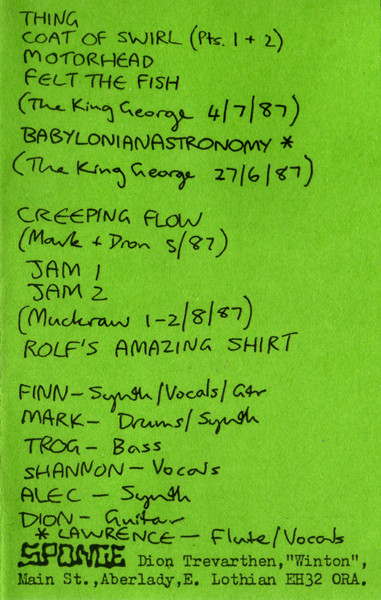 THING
COAT OF SWIRL (Pts. 1 + 2)
MOTORHEAD
FELT THE FISH
(The King George 4/7/87)
BABYLONIANASTRONOMY *
(The King George 27/6/87)
CREEPING FLOW
(Mark + Dion 5/87)
JAM 1
JAM 2
(Muckraw 1-2/8/87)
ROLF'S AMAZING SHIRT
FINN - Synth/Vocals/Gtr
MARK - Drums/Synth
TROG - Bass
SHANNON - Vocals
ALEC - Synth
DION - Guitar
* LAWRENCE - Flute/Vocals
SPONGE Dion Trevarthen,"Winton",
Main St.,Aberlady,E. Lothian EH32 ORA.